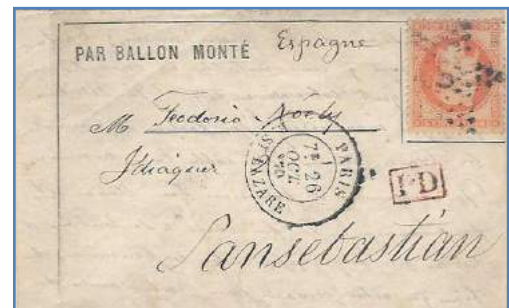 PAR BALLON MONTÉ Espagne
M Teodosio Noely
Idiaquez
PARIS
7E 26
OCT.
ST LAZARE
PD
Sansebastián